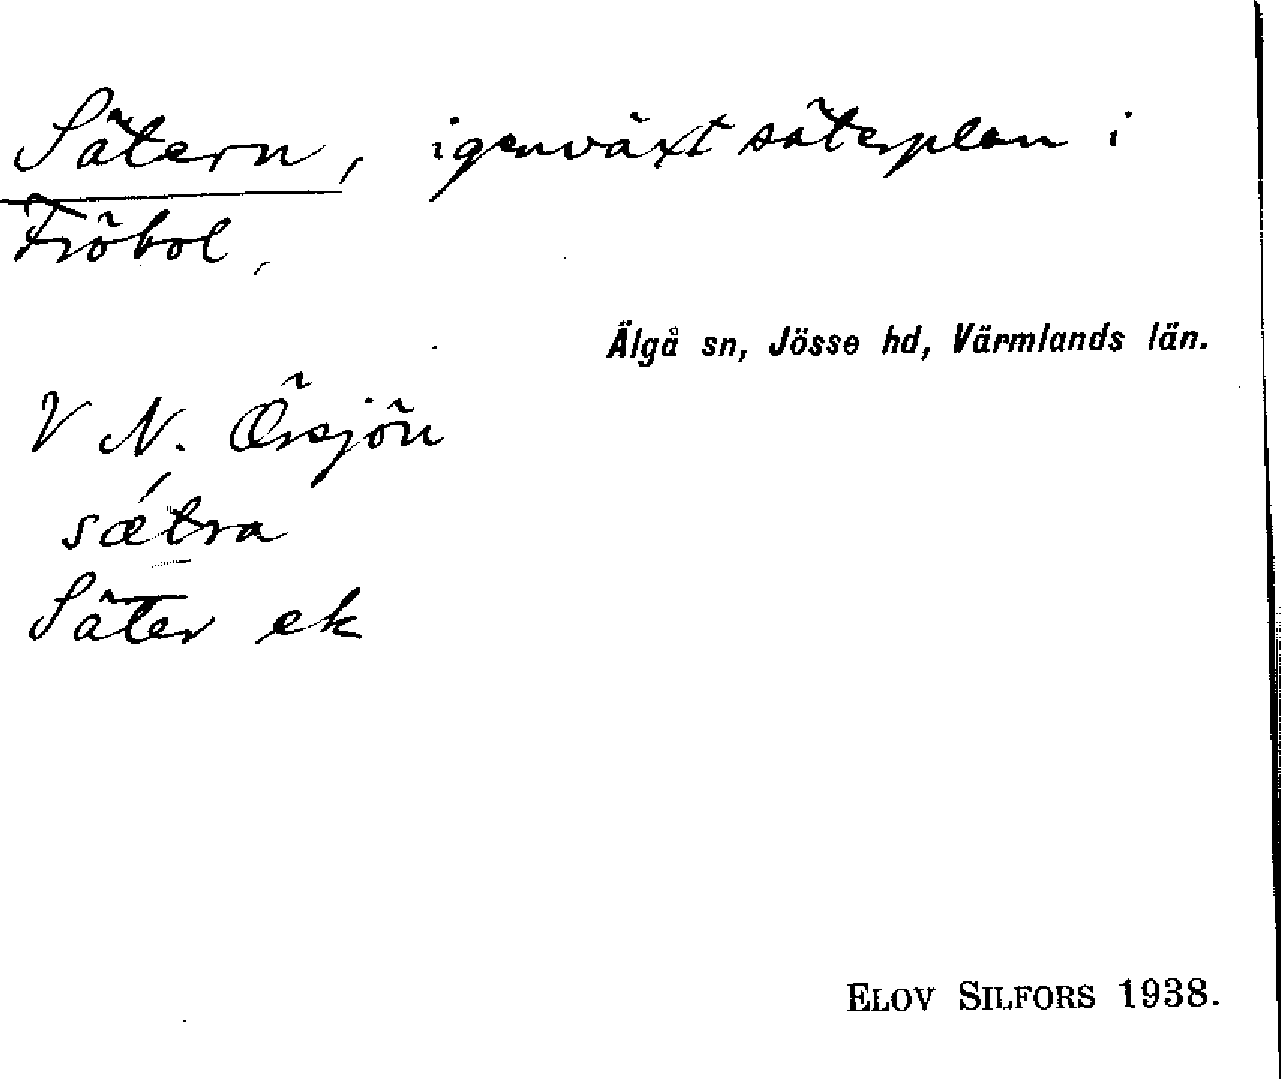 Sätern, igenväxt säterplan i
Fröbol,
Älgå sn, Jösse hd, Värmlands län.
V N. Örsjön
sǽtra
Säter ek
ELOV SILFORS 1938.